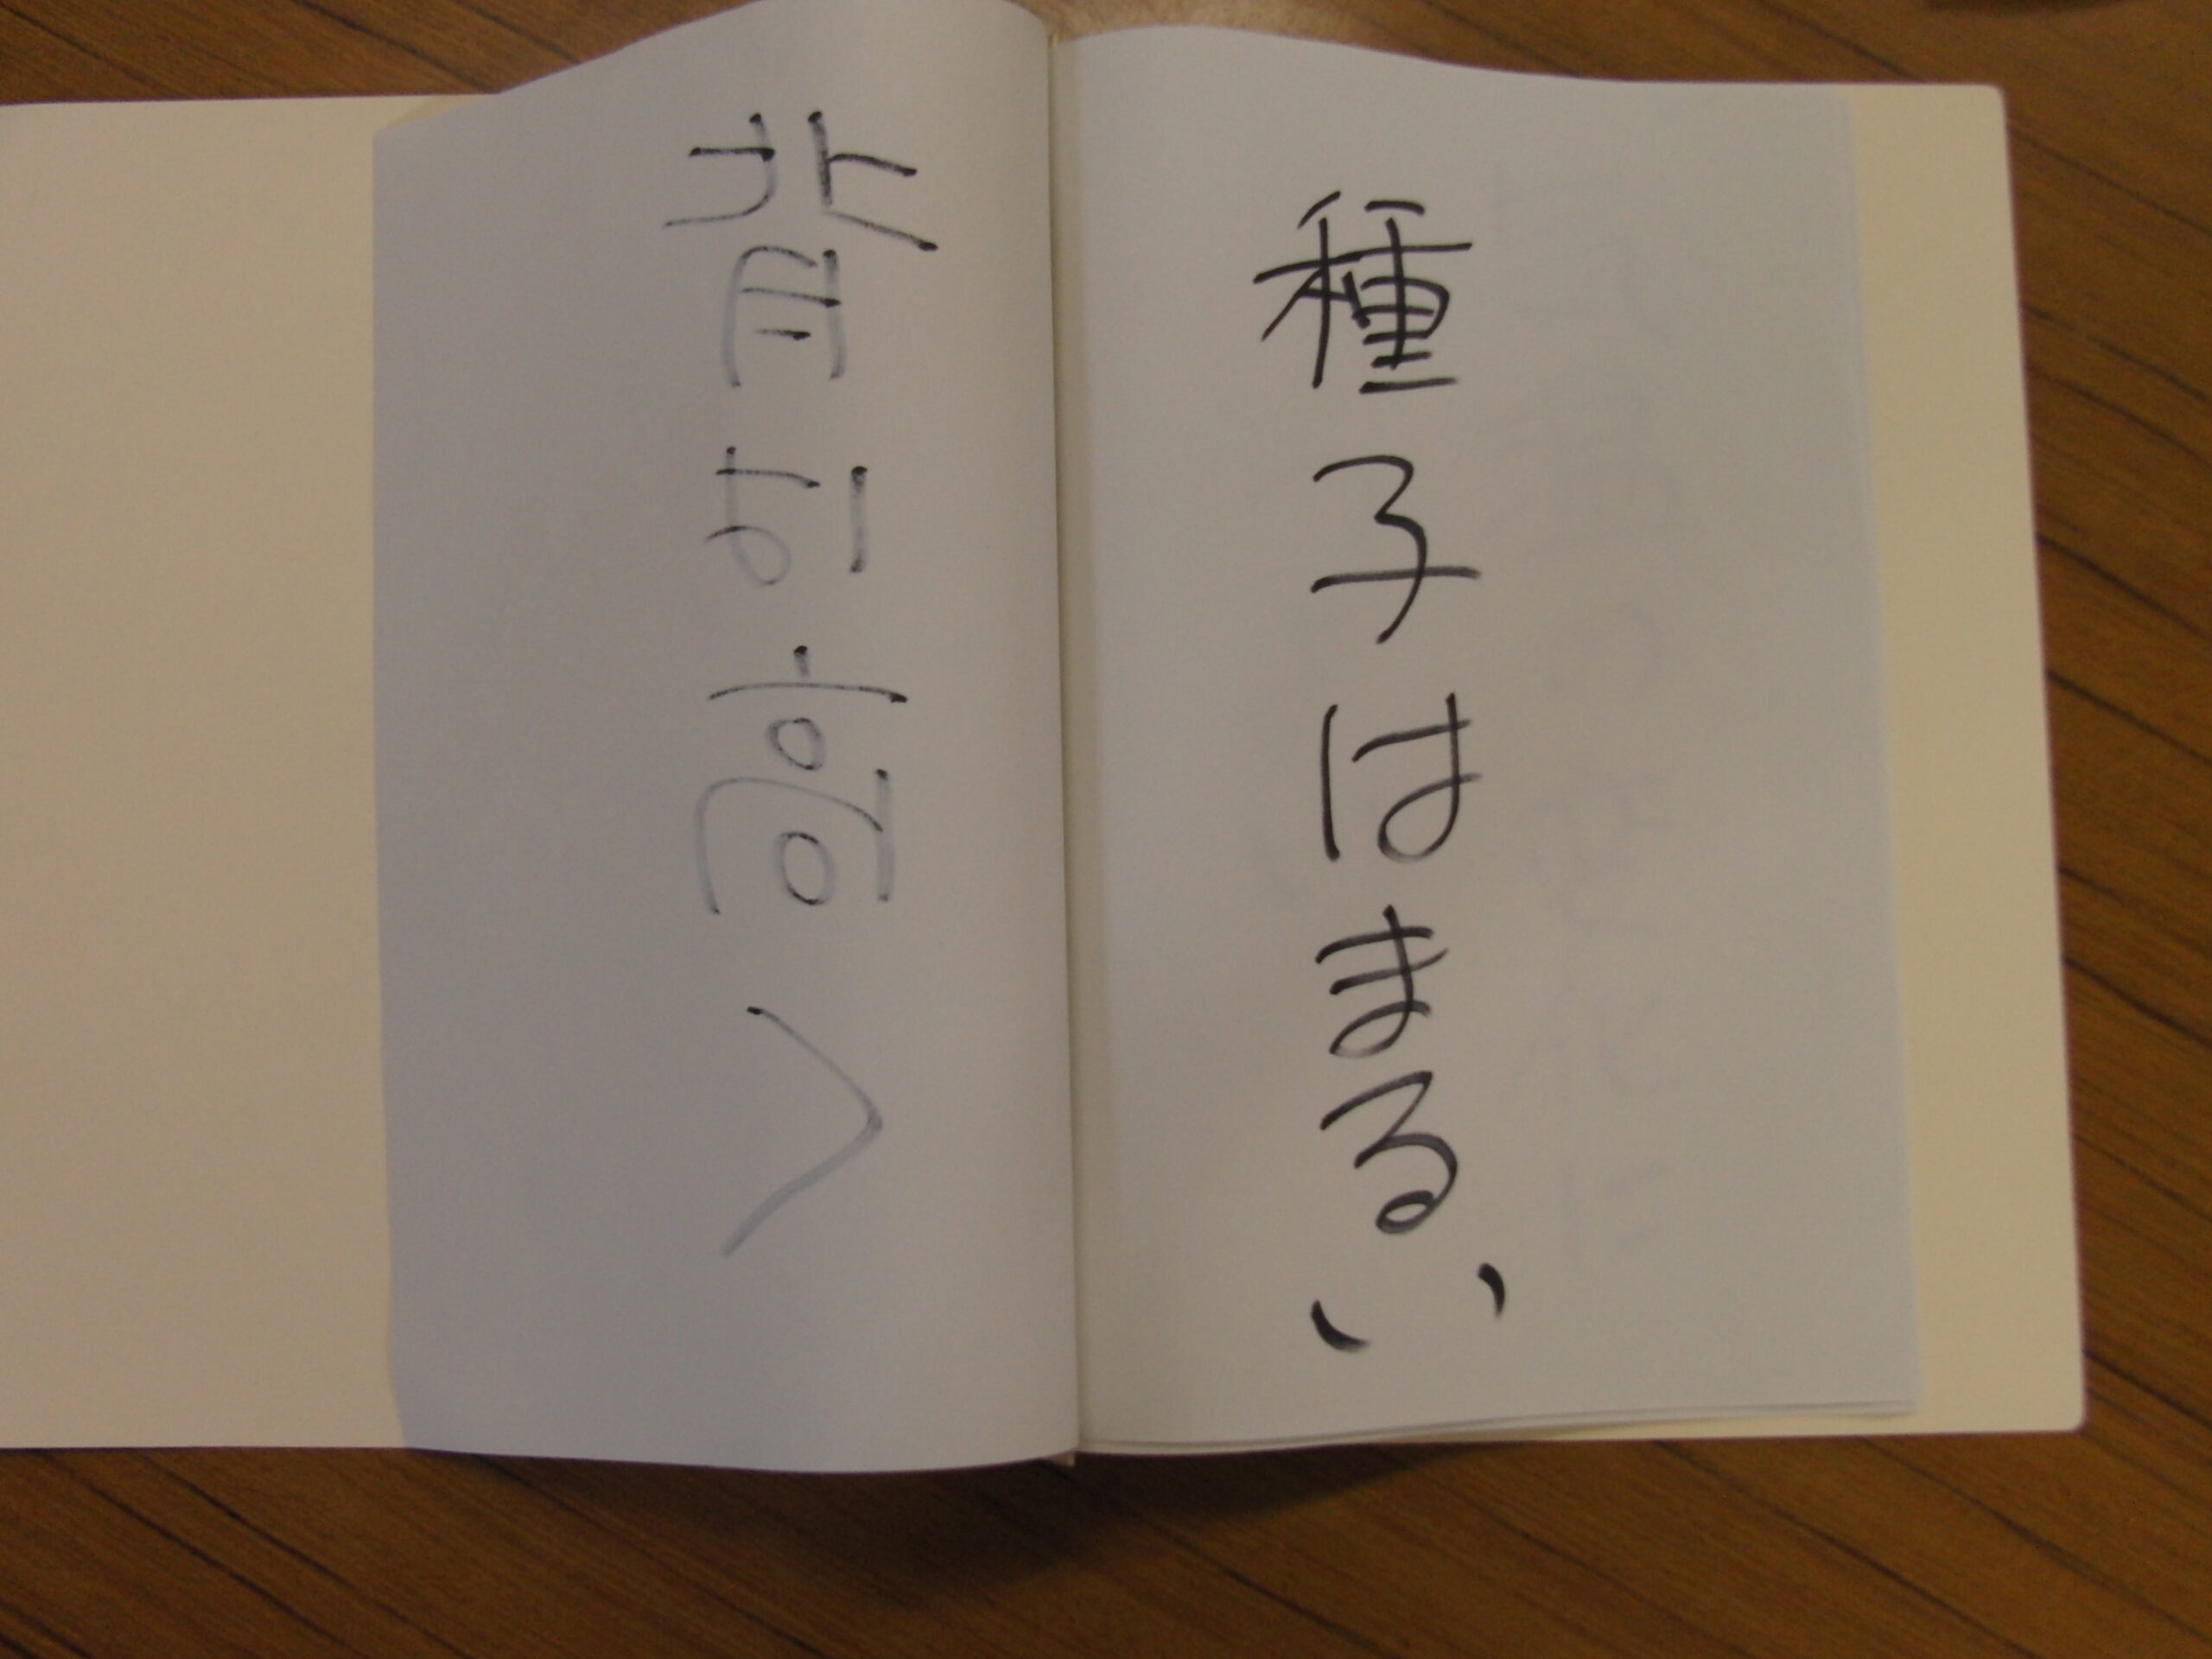 種子はまるい
背は高く